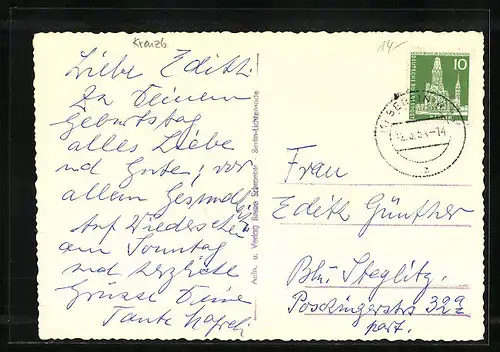 Kreuzb.
14/-
Liebe Edith!
Zu Deinem
Geburtstag
alles Liebe
und Gute, vor
allem Gesundheit.
Auf Wiedersehen
am Sonntag
und herzliche
Grüsse Deine
Tante
Aufn. u. Verlag Schroeter Berlin-Lichtenrade
10
DEUTSCHE BUNDESPOST BERLIN
BERLIN
-14
Frau
Edith Günther
Bln. Steglitz.
Poschingerstr 32a
part.